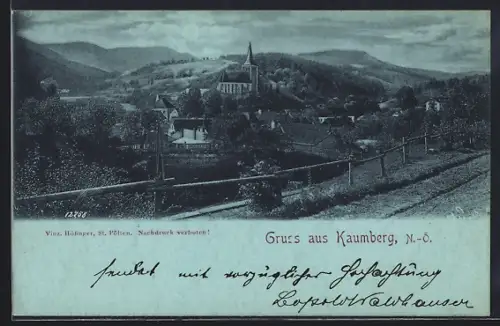 12758
Vinz. Höfinger, St. Pölten. Nachdruck verboten!
Gruss aus Kaumberg, N.-Ö.
sendet mit vorzüglicher Hochachtung
Leopold Waldhauser